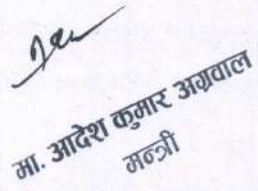 मा. आदेश कुमार अग्रवाल
मन्त्री